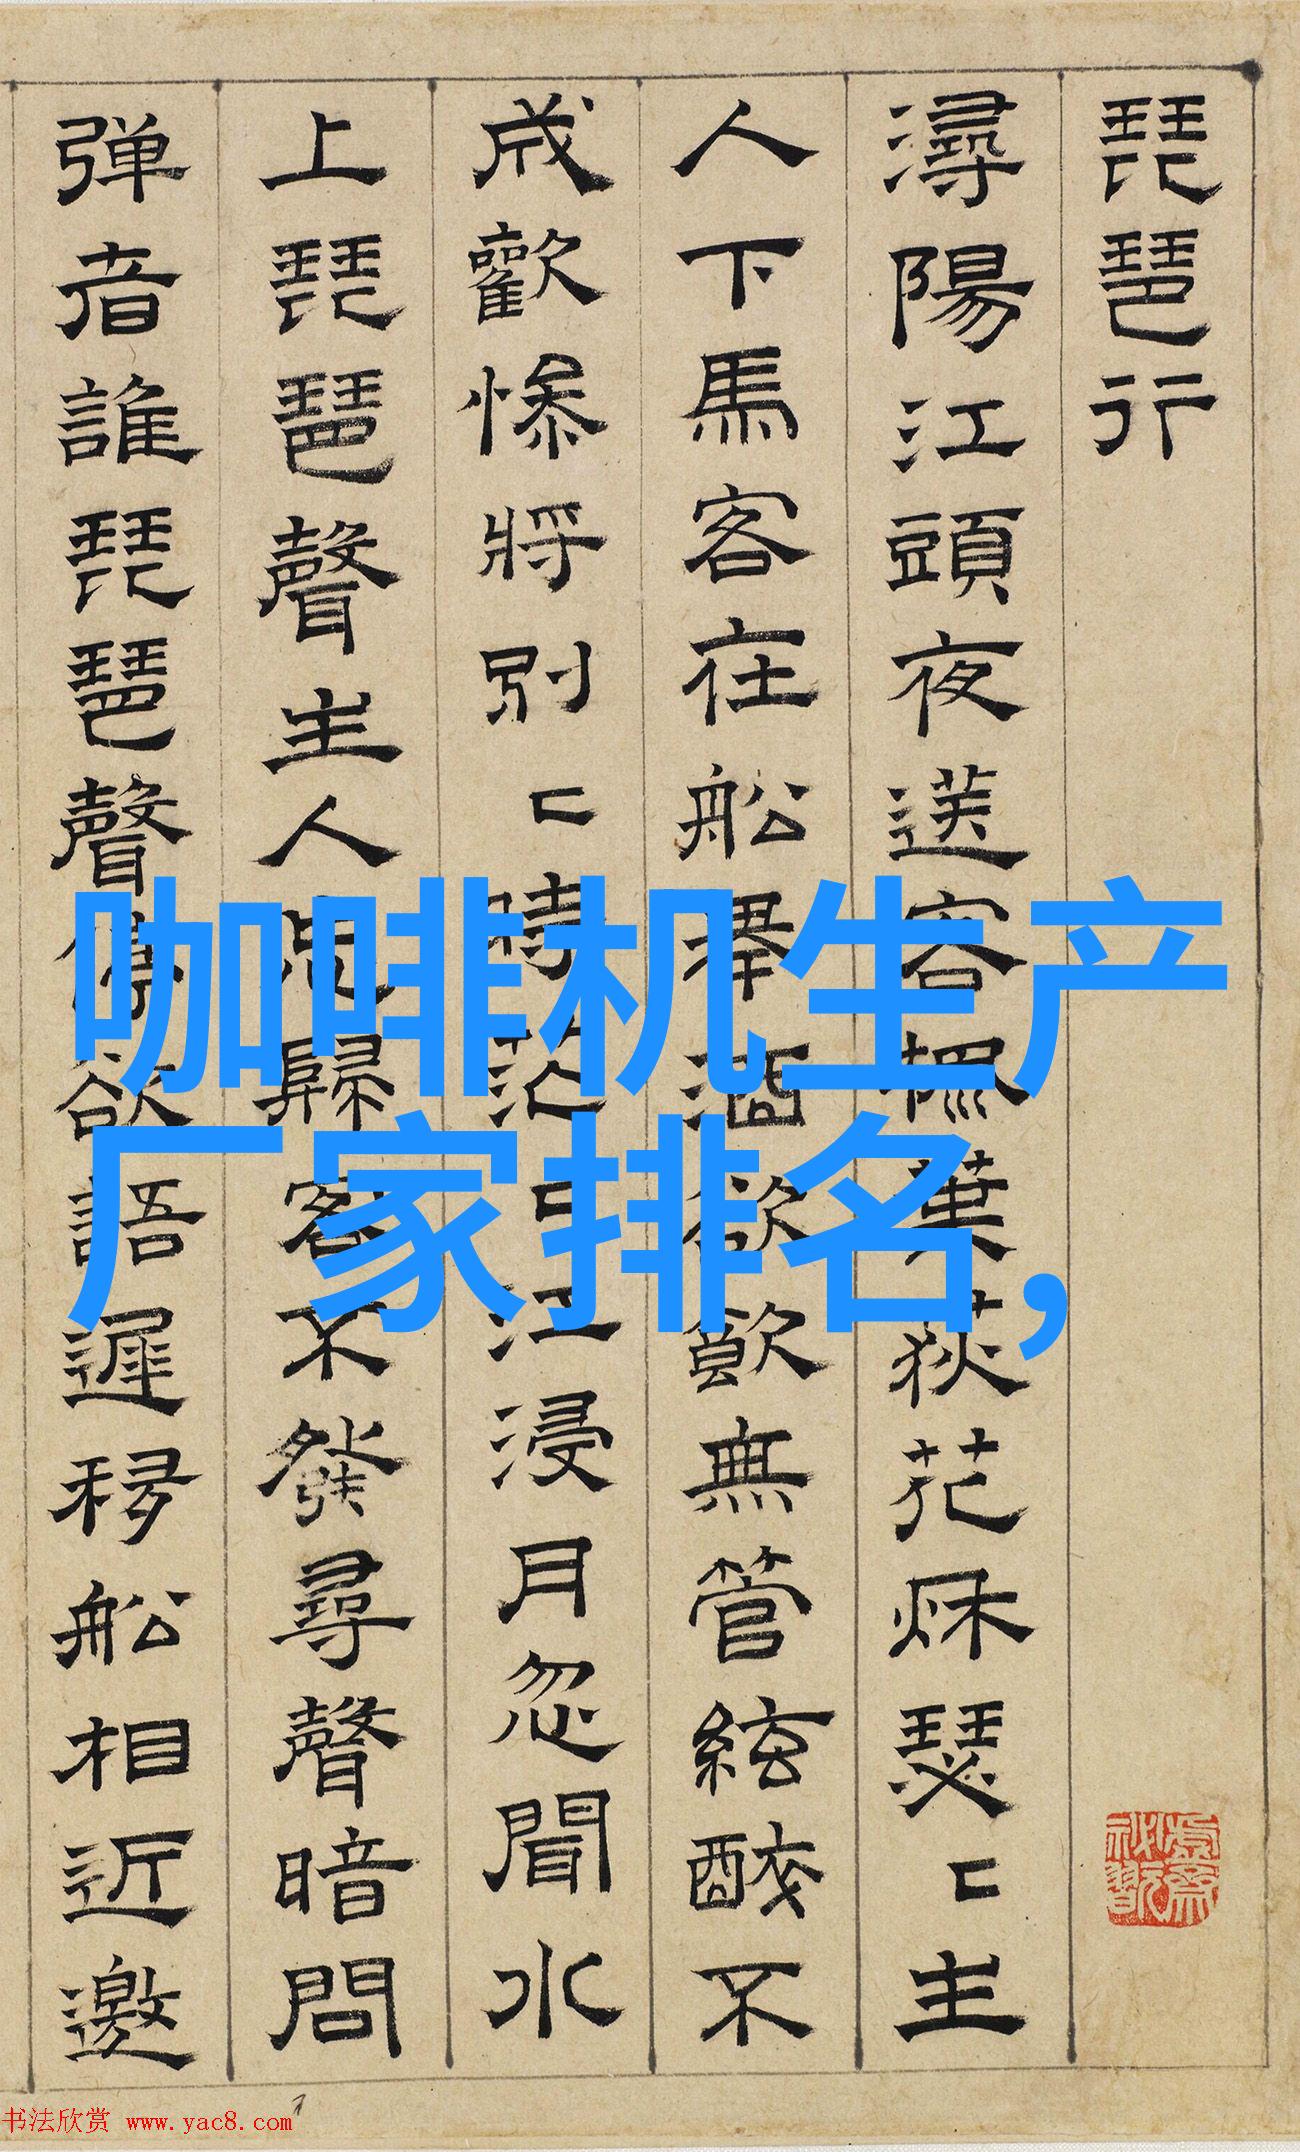 琵琶行
潯陽江頭夜送客楓葉荻花秌瑟〻主
人下馬客在船舉酒欲飲無管絃醉不
成歡慘將別〻時茫〻江浸月忽聞水
上琵琶聲主人忘歸客不發尋聲暗問
弹者誰琵琶聲停欲語遲移船相近邀
咖啡机生产
厂家排名,
书法欣赏 www.yac8.com